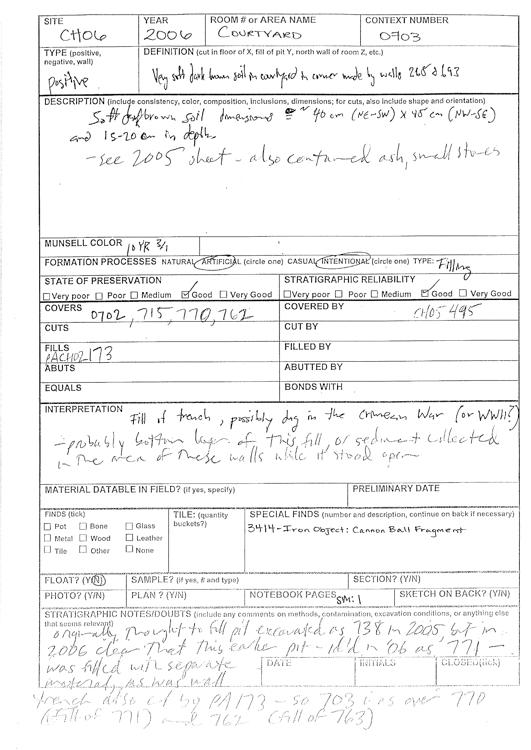 SITE YEAR ROOM # or AREA NAME CONTEXT NUMBER
CH06 2006 COURTYARD 0703
TYPE (positive, negative, wall) DEFINITION (cut in floor of X, fill of pit Y, north wall of room Z, etc.)
Positive Very soft dark brown soil in courtyard to corner made by walls 268 & 693
DESCRIPTION (include consistency, color, composition, inclusions, dimensions; for cuts, also include shape and orientation)
Soft brown soil dimensions ~ 40 cm (NE-SW) X 45 cm (NW-SE)
and 15-20 cm in depth
- see 2005 sheet - also contained ash, small stones
MUNSELL COLOR 10 YR 3/1
FORMATION PROCESSES NATURAL ARTIFICIAL (circle one) CASUAL INTENTIONAL (circle one) TYPE: Filling
STATE OF PRESERVATION STRATIGRAPHIC RELIABILITY
Very poor Poor Medium Good Very Good Very poor Poor Medium Good Very Good
COVERS 0702, 715, 770, 762 COVERED BY CH05 495
CUTS CUT BY
FILLS PACH02 173 FILLED BY
ABUTS ABUTTED BY
EQUALS BONDS WITH
INTERPRETATION Fill of trench, possibly dug in the Crimean War (or WWII?)
- probably bottom layer of this fill, or sediment collected
in the area of these walls while it stood open
MATERIAL DATABLE IN FIELD? (if yes, specify) PRELIMINARY DATE
FINDS (tick) TILE: (quantity buckets?) SPECIAL FINDS (number and description, continue on back if necessary)
Pot Bone Glass 3414-Iron Object: Cannon Ball Fragment
Metal Wood Leather
Tile Other None
FLOAT? (Y/N) SAMPLE? (if yes, # and type) SECTION? (Y/N)
PHOTO? (Y/N) PLAN ? (Y/N) NOTEBOOK PAGES SM: 1 SKETCH ON BACK? (Y/N)
STRATIGRAPHIC NOTES/DOUBTS (include any comments on methods, contamination, excavation conditions, or anything else
that seems relevant) originally thought to fill pit excavated as 738 in 2005, but in
2006 clear that this earlier pit - id'd in '06 as, 771 -
was filled with separate DATE INITIALS CLOSED(tick)
material, as was wall
trench also cut by PA173 - so 703 is over 770
(fill of 771) and 762 (fill of 763)